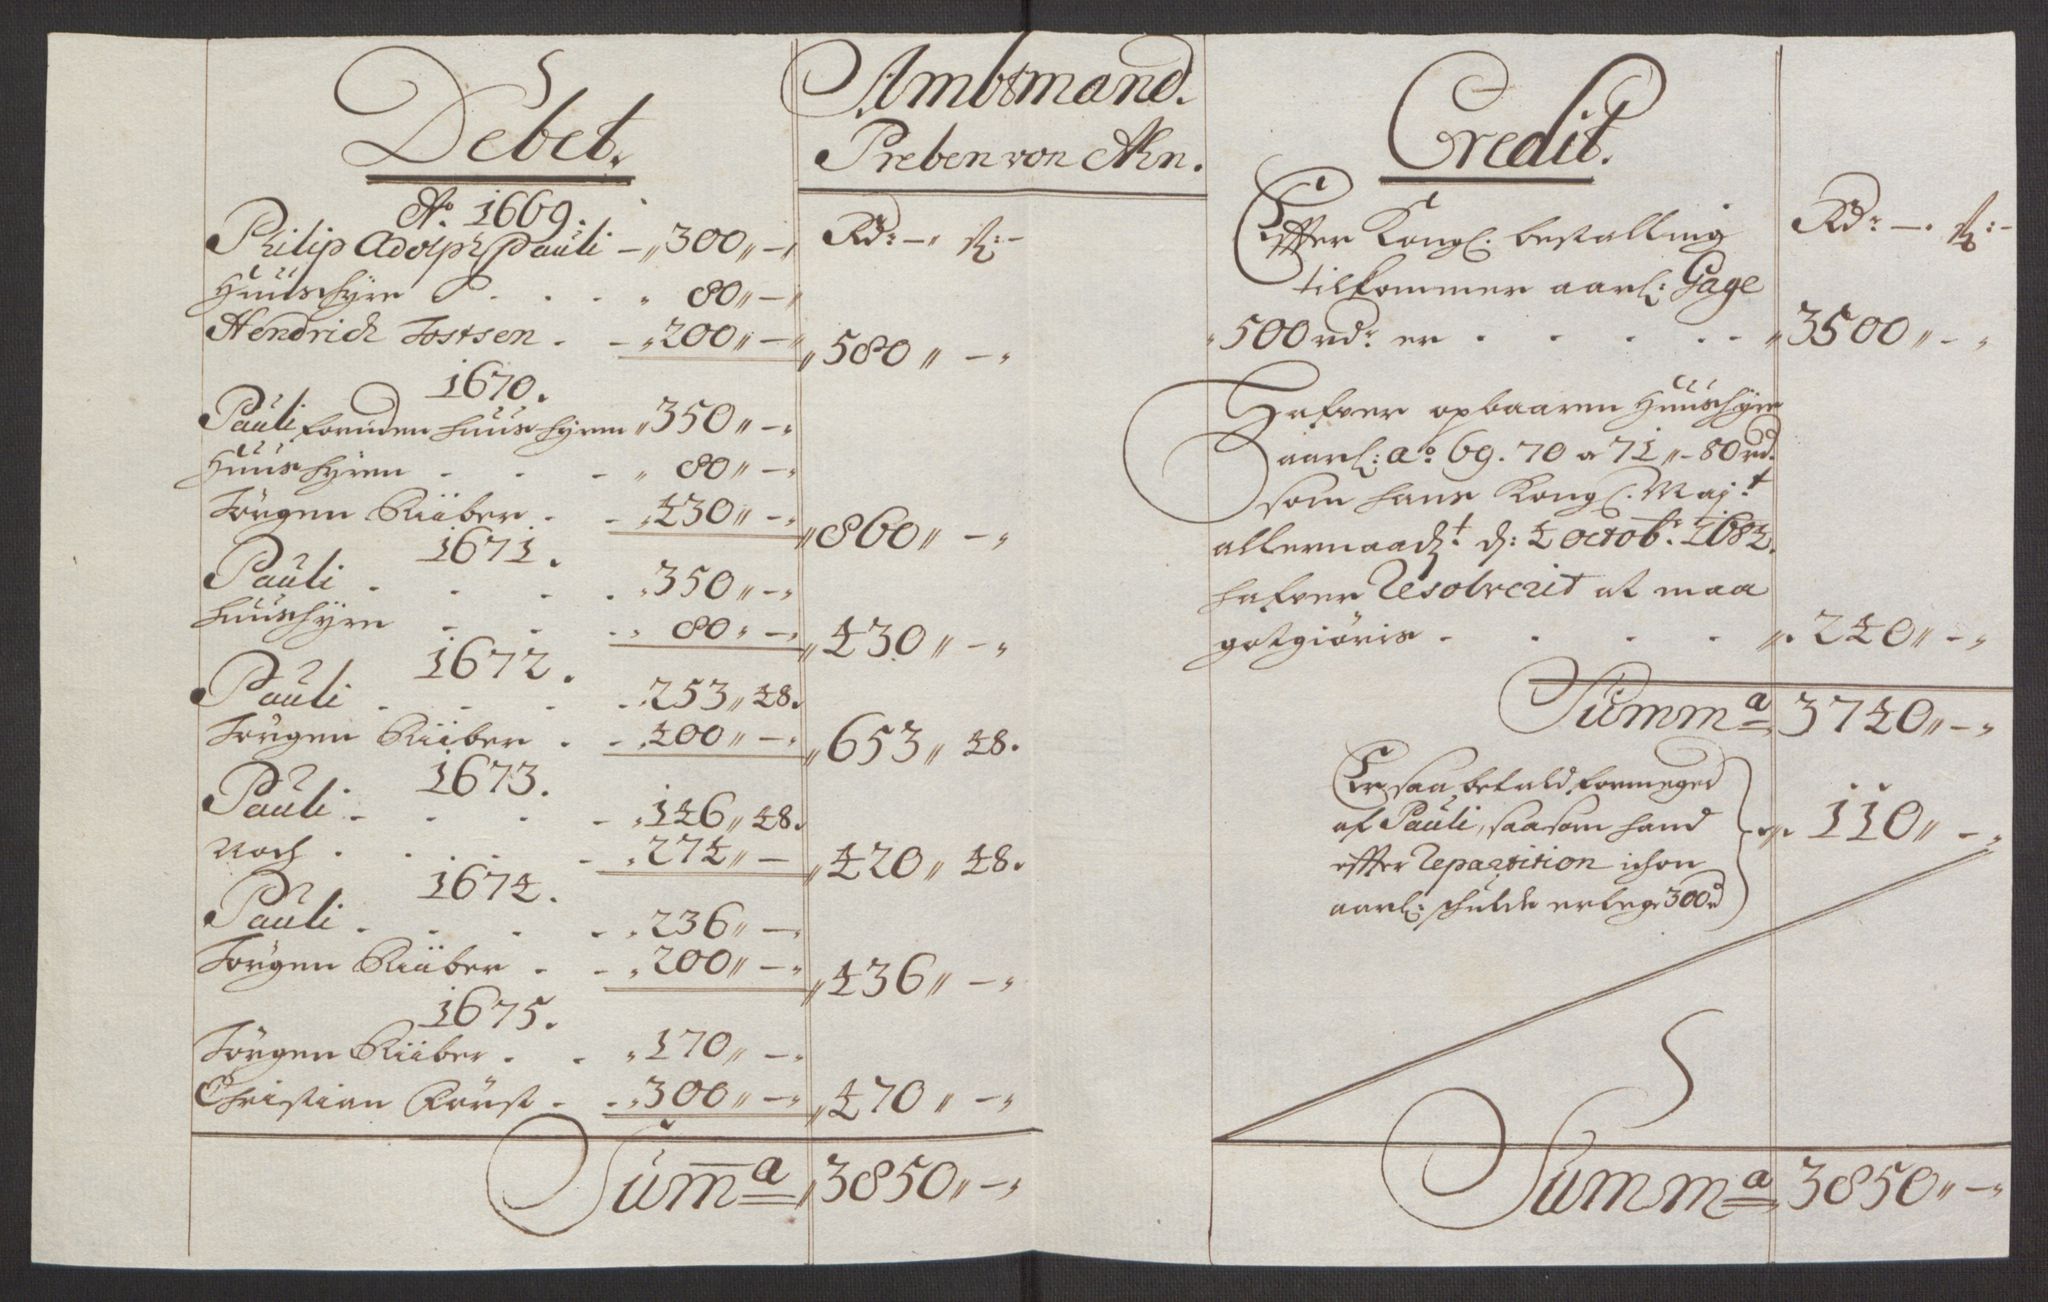 Debet.
Ambtmand.
Preben von Ahn.
Ao. 1669.
Philip Adolph Pauli – „ 300 „ –
Rdr: – sz: –
Huuschÿre . . . . „ 80 „ –
Hendrich Jostsen . . „ 200 „ – „ 580 „ –
1670.
Pauli foruden huuschÿren „ 350 „ –
Huuschÿren . . . „ 80 „ –
Jörgen Riiber . . „ 430 „ – „ 860 „ –
1671.
Pauli . . . . „ 350 „ –
huuschÿre . . . „ 80 „ – „ 430 „ –
1672.
Pauli . . . . 253 „ 48.
Jörgen Riiber . . „ 400 „ – „ 653 „ 48.
1673.
Pauli . . . . „ 146 „ 48.
Noch . . . . „ 274 „ – „ 420 „ 48.
1674.
Pauli . . . . „ 236 „ –
Jörgen Riiber . . „ 200 „ – „ 436 „ –
1675.
Jörgen Riiber . . „ 170 „ –
Christian . . „ 300 „ – „ 470 „ –
Suma „ 3850 „ –
Credit.
Rdr: – sz: –
Effter Kongl. bestalling
tilkommer aarl: Gage
500 rdr er . . . . . „ 3500 „ –
Hafver opbaaren Huuschÿre
aarl: ao 69. 70 a 71 „ 80 rd.
som hans Kongl. Majt
allernaadt. d: 4 octobr. 1684.
hafver Resolverit at maa
gotgiöris . . . . „ 240 „ –
Summa 3740 „ –
Er saa betald formeged
af Pauli, saasom hand
effter Repartition ichon
aarl: schulde erlege 300 rd „ 110 „ –
Summa 3850 „ –